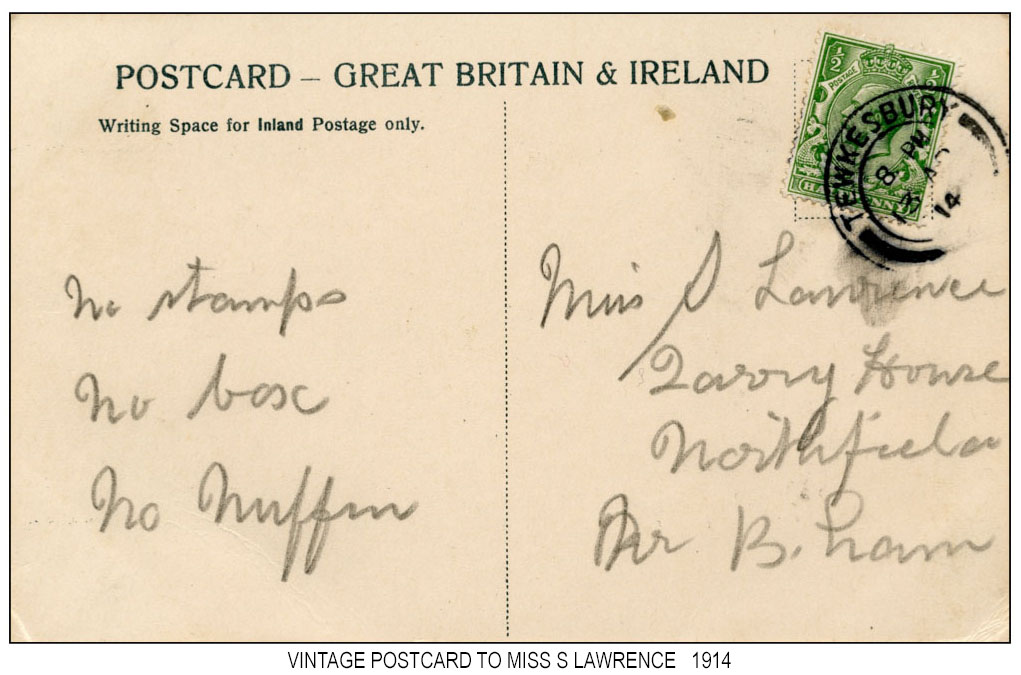 POSTCARD – GREAT BRITAIN & IRELAND
Writing Space for Inland Postage only.
½ ½
POSTAGE
HALFPENNY
TEWKESBURY
8 PM
14
No stamps
No box
No Nuffin
Miss S Lawrence
House
Northfield
Nr B.ham
VINTAGE POSTCARD TO MISS S LAWRENCE 1914